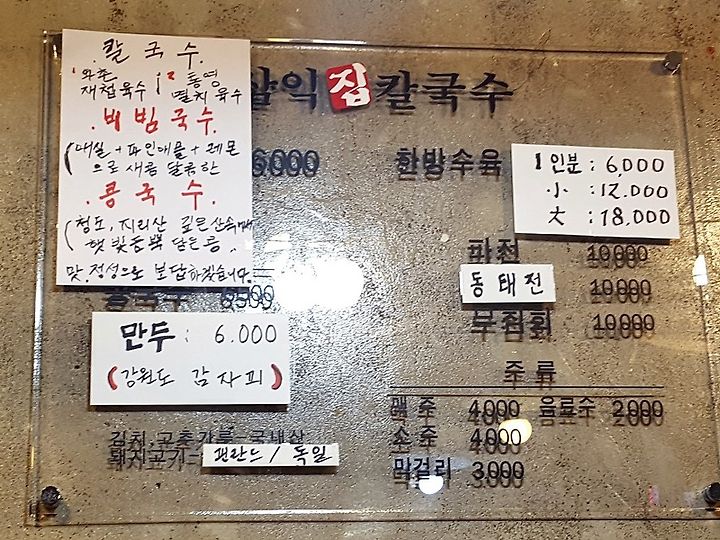 칼국수
와촌
재첩육수
통영
멸치육수
살익집칼국수
비빔국수
(매실+파인애플+레몬
으로 새콤달콤한
콩국수
(청도, 지리산 깊은산속
맛, 정성으로 보답하겠습니다.
6,000
한방수육
1인분: 6,000
小: 12.000
大: 18,000
파전 10,000
동태전 10,000
부침회 10,000
콩국수 6500
만두: 6.000
(강원도 감자피)
주류
맥주 4,000 음료수 2,000
소주 4,000
막걸리 3,000
김치, 고춧가루-국내산
돼지고기-핀란드/독일